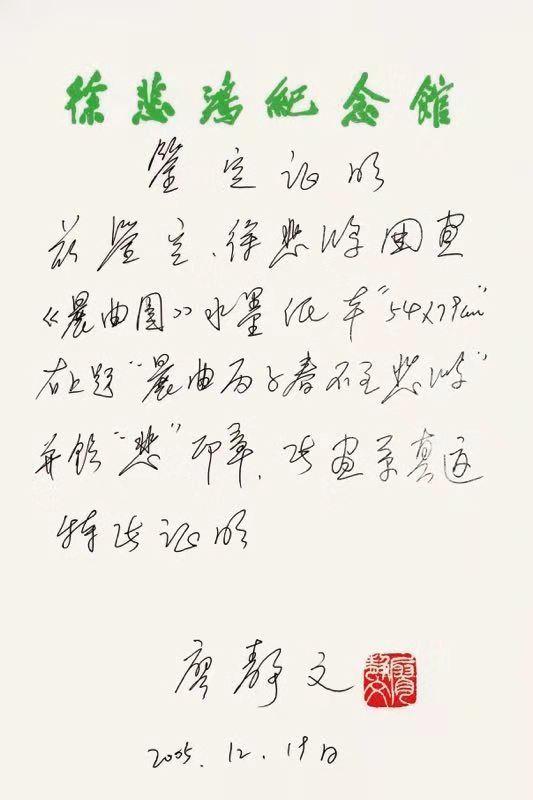 徐悲鸿紀念館
鉴定证明
兹鉴定、徐悲鸿国画
《晨曲图》水墨纸本"54×79cm"
右上题"晨曲丙子春 悲鸿"
并钤"悲"印章、此画系真迹
特此证明
廖静文
廖靜文
2005.12.19日